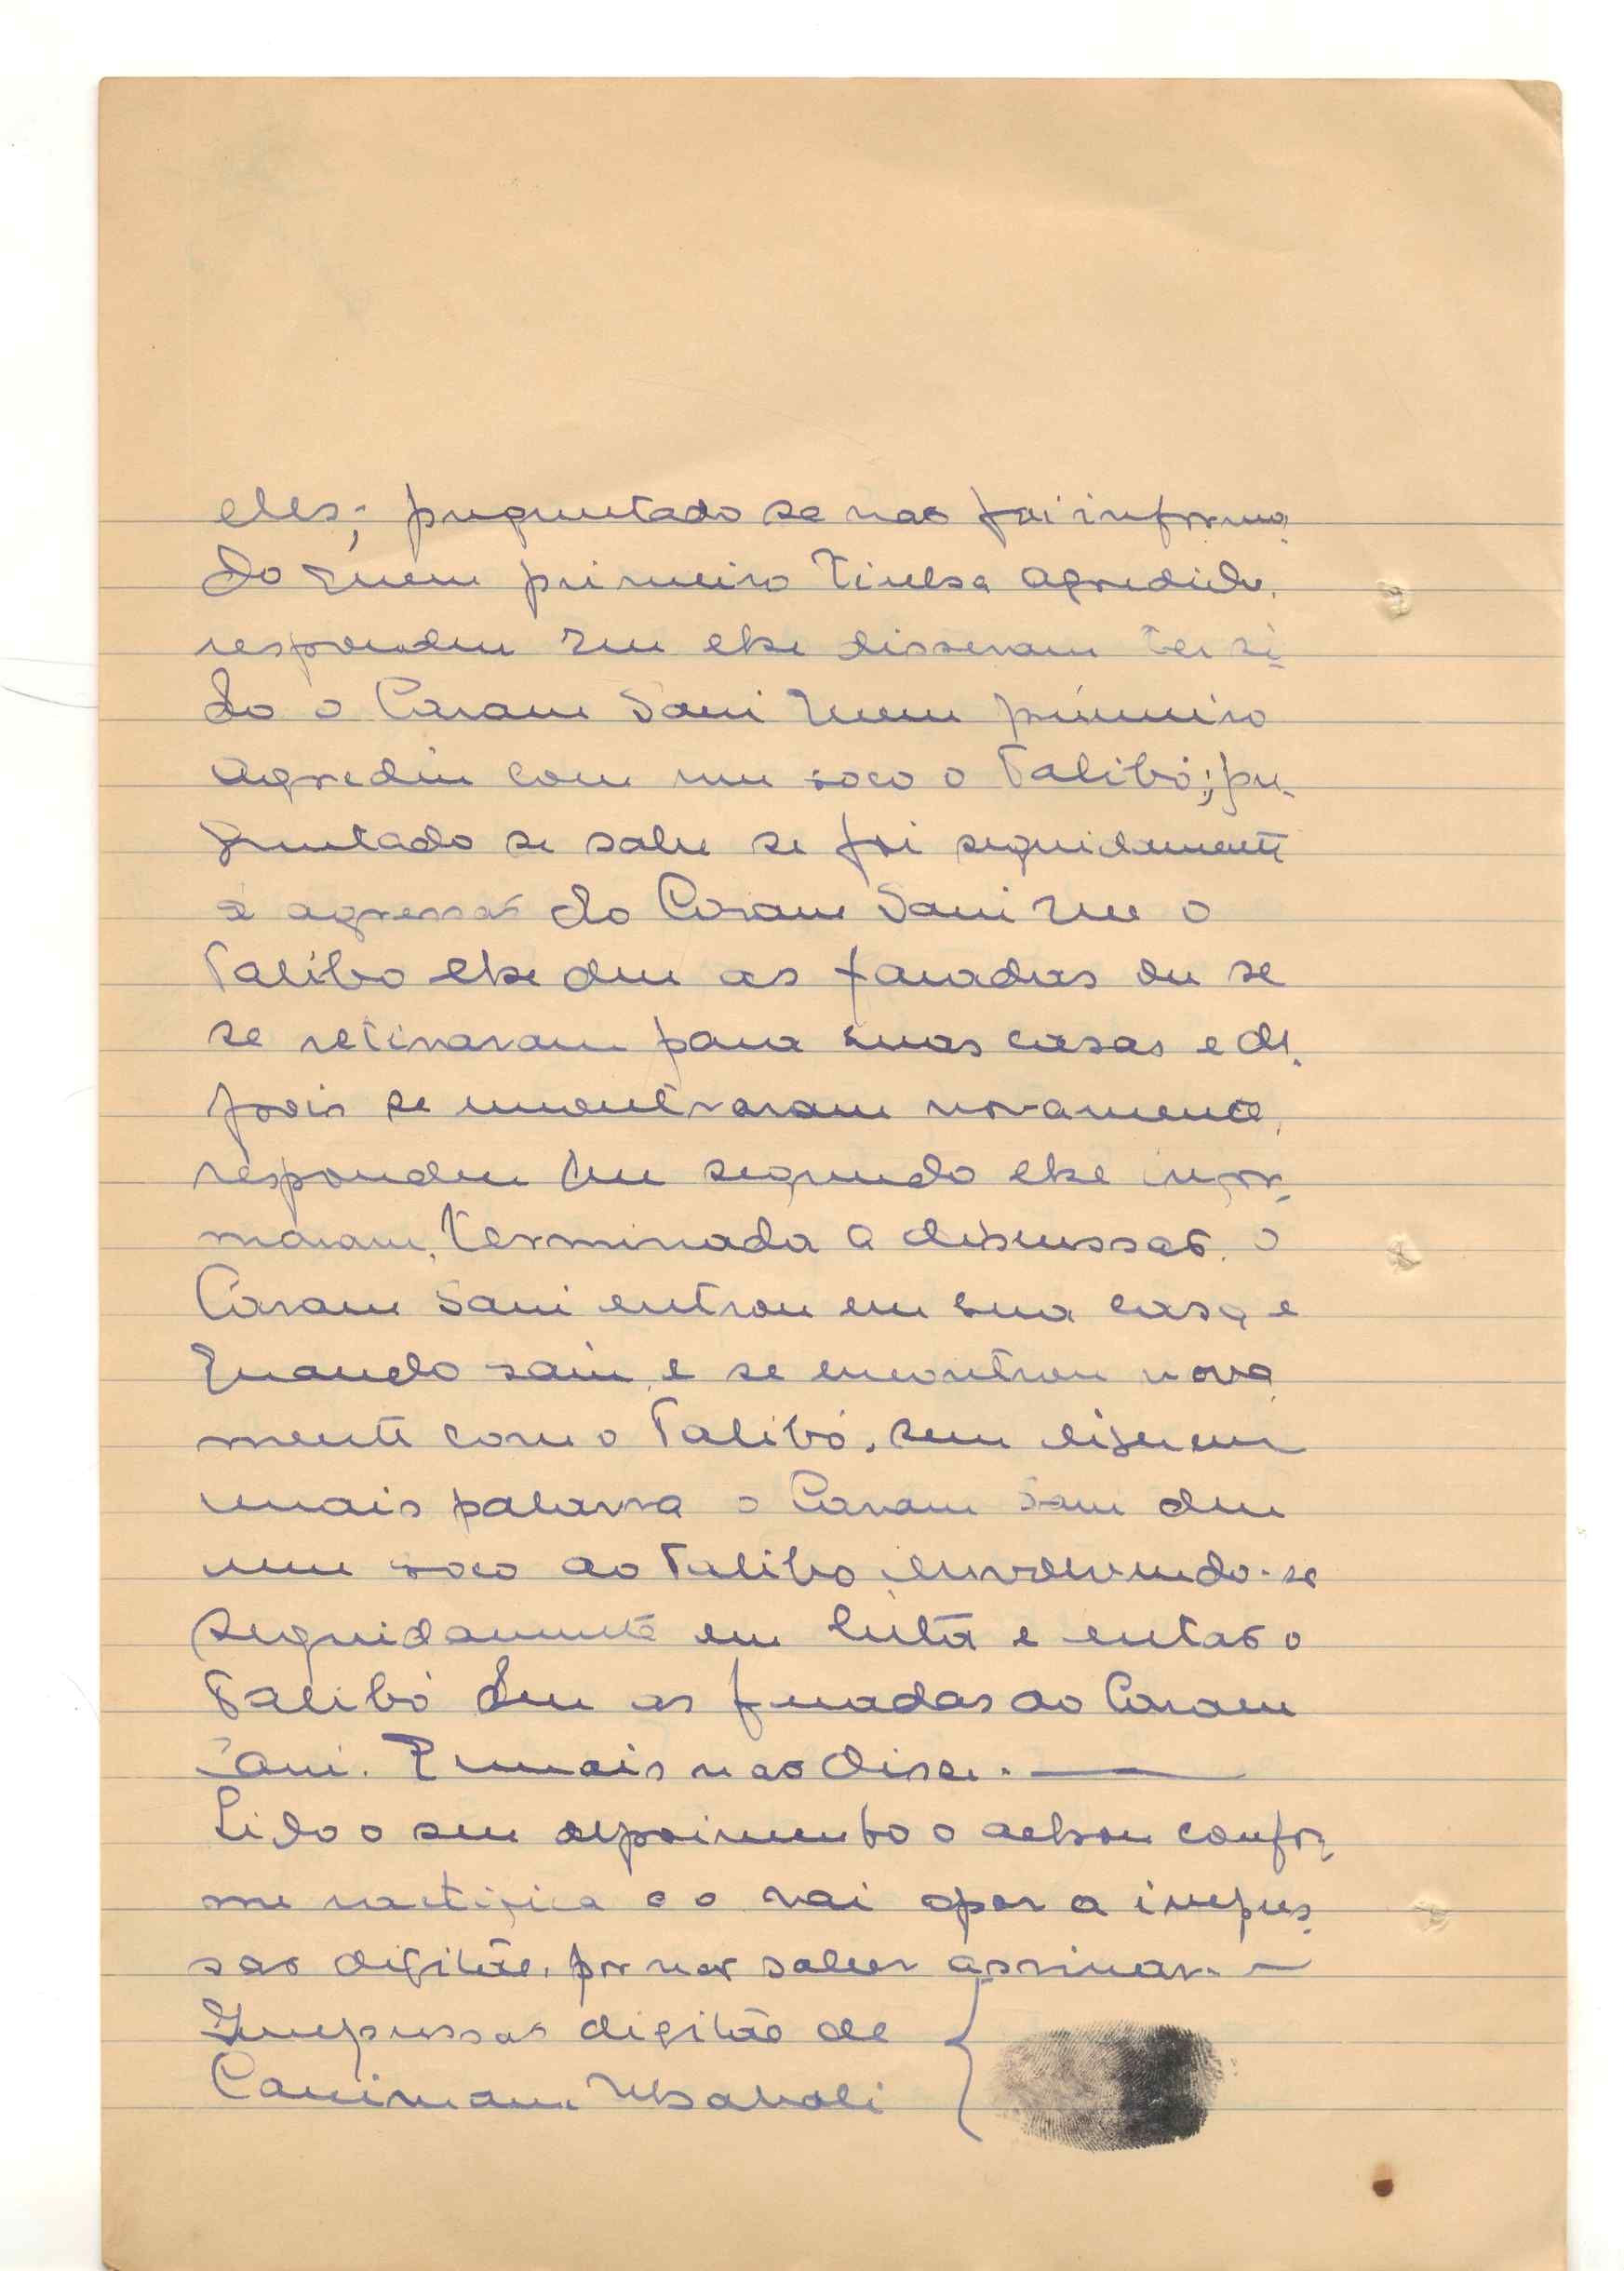 eles; preguntado se nao foi informa-
do quem primeiro tivesse agredido,
respondeu que lhe disseram ter si-
do o Caram Sani quem primeiro
agrediu com um soco o Talibó; pre-
guntado se sabe se foi seguidamente
á agressão do Caram Sani que o
Talibo lhe deu as facadas ou se
se retiraram para suas casas e de-
pois se encontraram novamente,
respondeu que segundo lhe infor-
maram, terminada a discussão, o
Caram Sani entrou em sua casa e
quando saiu e se encontrou nova
mente com o Talibó, sem dizerem
mais palavra o Caram Sani deu
um soco ao Talibo envolvendo-se
seguidamente em luta e entao o
Talibó deu as facadas ao Caram
Sani. E mais nao disse.
Lido o seu depoimento o achou confor-
me ractifica e o vai apor a impres-
sao digitão, por nao saber assinar.
Impressao digitão de